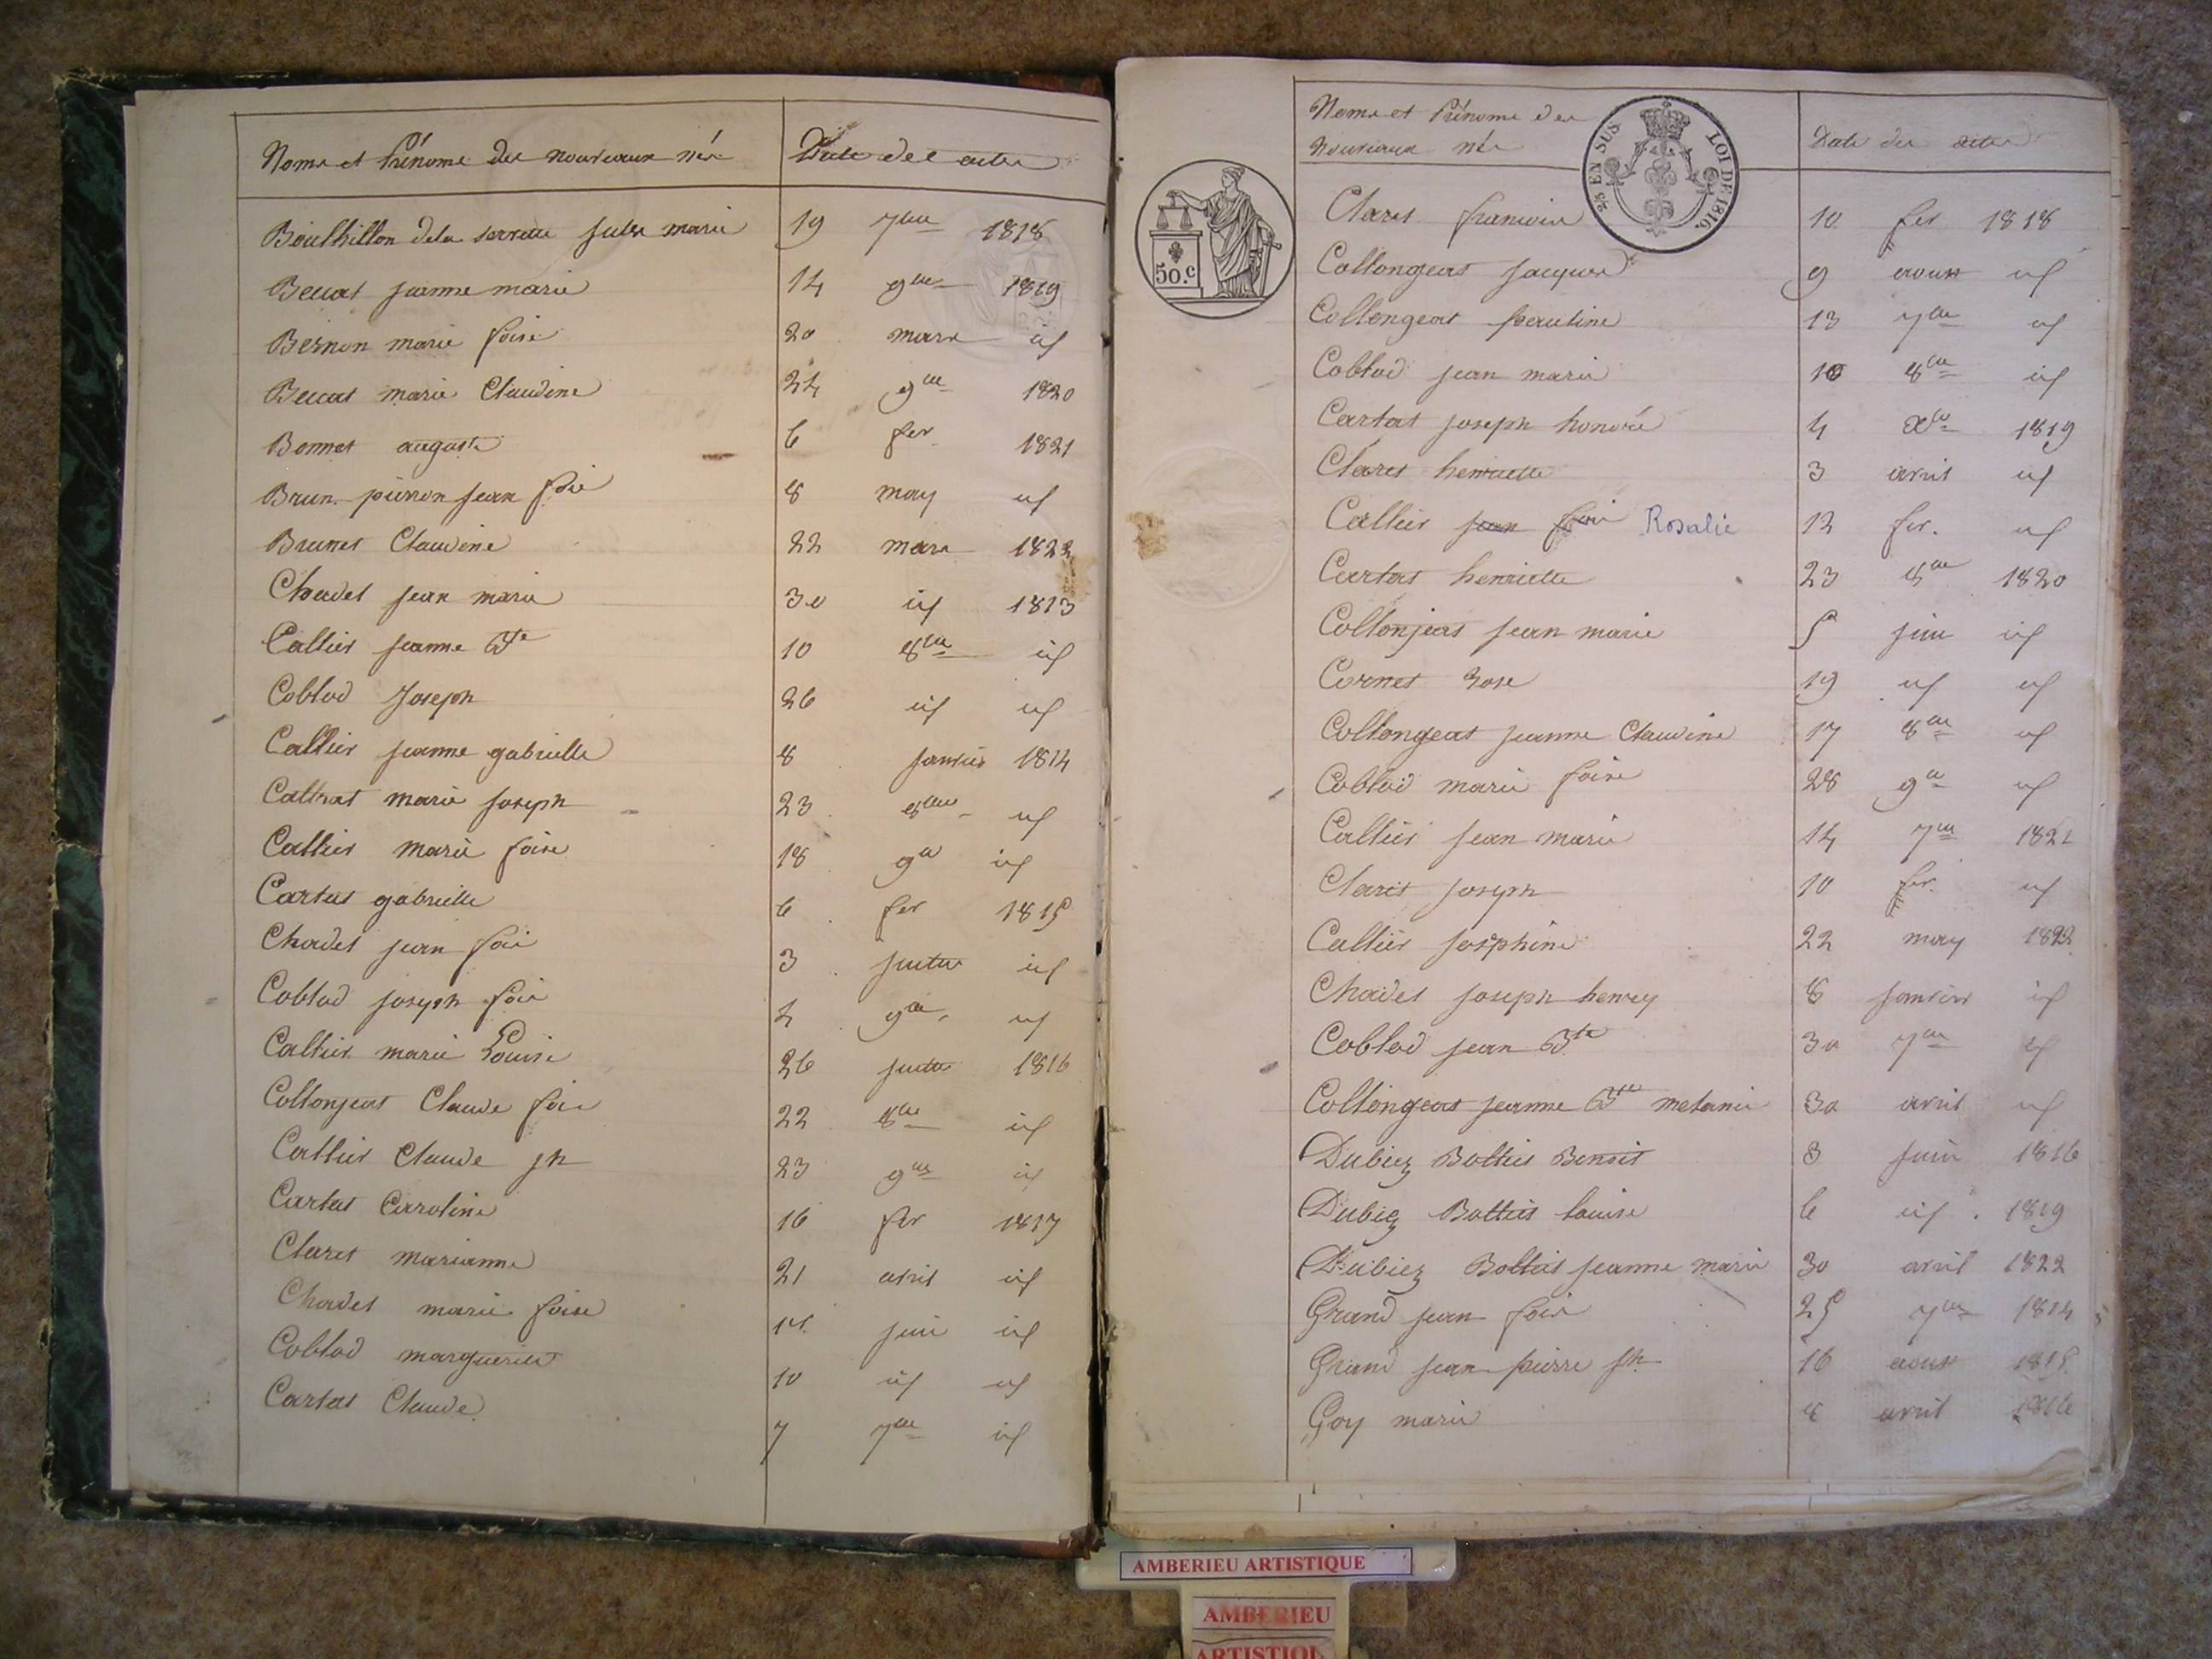 Noms et Prénoms des nouveaux nés Date des actes
Bouthillon dela serrette jules marie 19 7bre 1818
Beccat jeanne marie 14 9bre 1819
Bernon marie foise 20 mars id
Beccat marie Claudine 24 9bre 1820
Bonnet auguste 6 fer 1821
Brun pierron jean fois 8 may id
Brunet Claudine 22 mars 1822
Chadel jean marie 30 id 1813
Caltier jeanne Bte 10 8bre id
Coblod Joseph 26 id id
Caltier jeanne gabrielle 8 janvier 1814
marie joseph 23 8bre id
Caltier marie foise 18 9bre id
Cartas gabrielle 6 fer 1815
Chadel jean fois 3 id
Coblod joseph fois 4 9bre id
Caltier marie Louise 26 1816
Collonjeas Claude fois 22 8bre id
Caltier Claude jh 23 9bre id
Cartas Caroline 16 fer 1817
Claret marianne 21 avril id
Chadel marie foise juin id
Coblod marguerite 10 id id
Cartas Claude 7 7bre id
Noms et Prénoms des
nouveaux nés Date des actes
25 EN SUS LOI DE 1816.
50.c
Claret francois 10 fer 1818
Collongeas jacques 9 aoust id
Collongeas pauline 13 7bre id
Coblod jean marie 10 8bre id
Cartas joseph honoré 4 Xbre 1819
Claret henriette 3 avril id
Caltier jean fois Rosalie 12 fer. id
Cartas henriette 23 8bre 1820
Collonjeas jean marie 5 juin id
Cornet Rose 19 id id
Collongeas jeanne Claudine 17 8bre id
Coblod marie foise 28 9bre id
Caltier jean marie 14 7bre 1821
Claret joseph 10 fer. id
Caltier josephine 22 may 1822
Chadel joseph henry 8 janvier id
Coblod jean Bte 30 7bre id
Collongeas jeanne Bte melanie 30 avril id
Dubiez Bottier Benoit 3 juin 1816
Dubiez Bottier louise 6 id. 1819
Dubiez Bottier jeanne marie 30 avril 1822
Grand jean fois 25 7bre 1814
Grand jean pierre jh 16 aoust 1815
Goy marie 8 avril 1816
AMBERIEU ARTISTIQUE
AMBERIEU